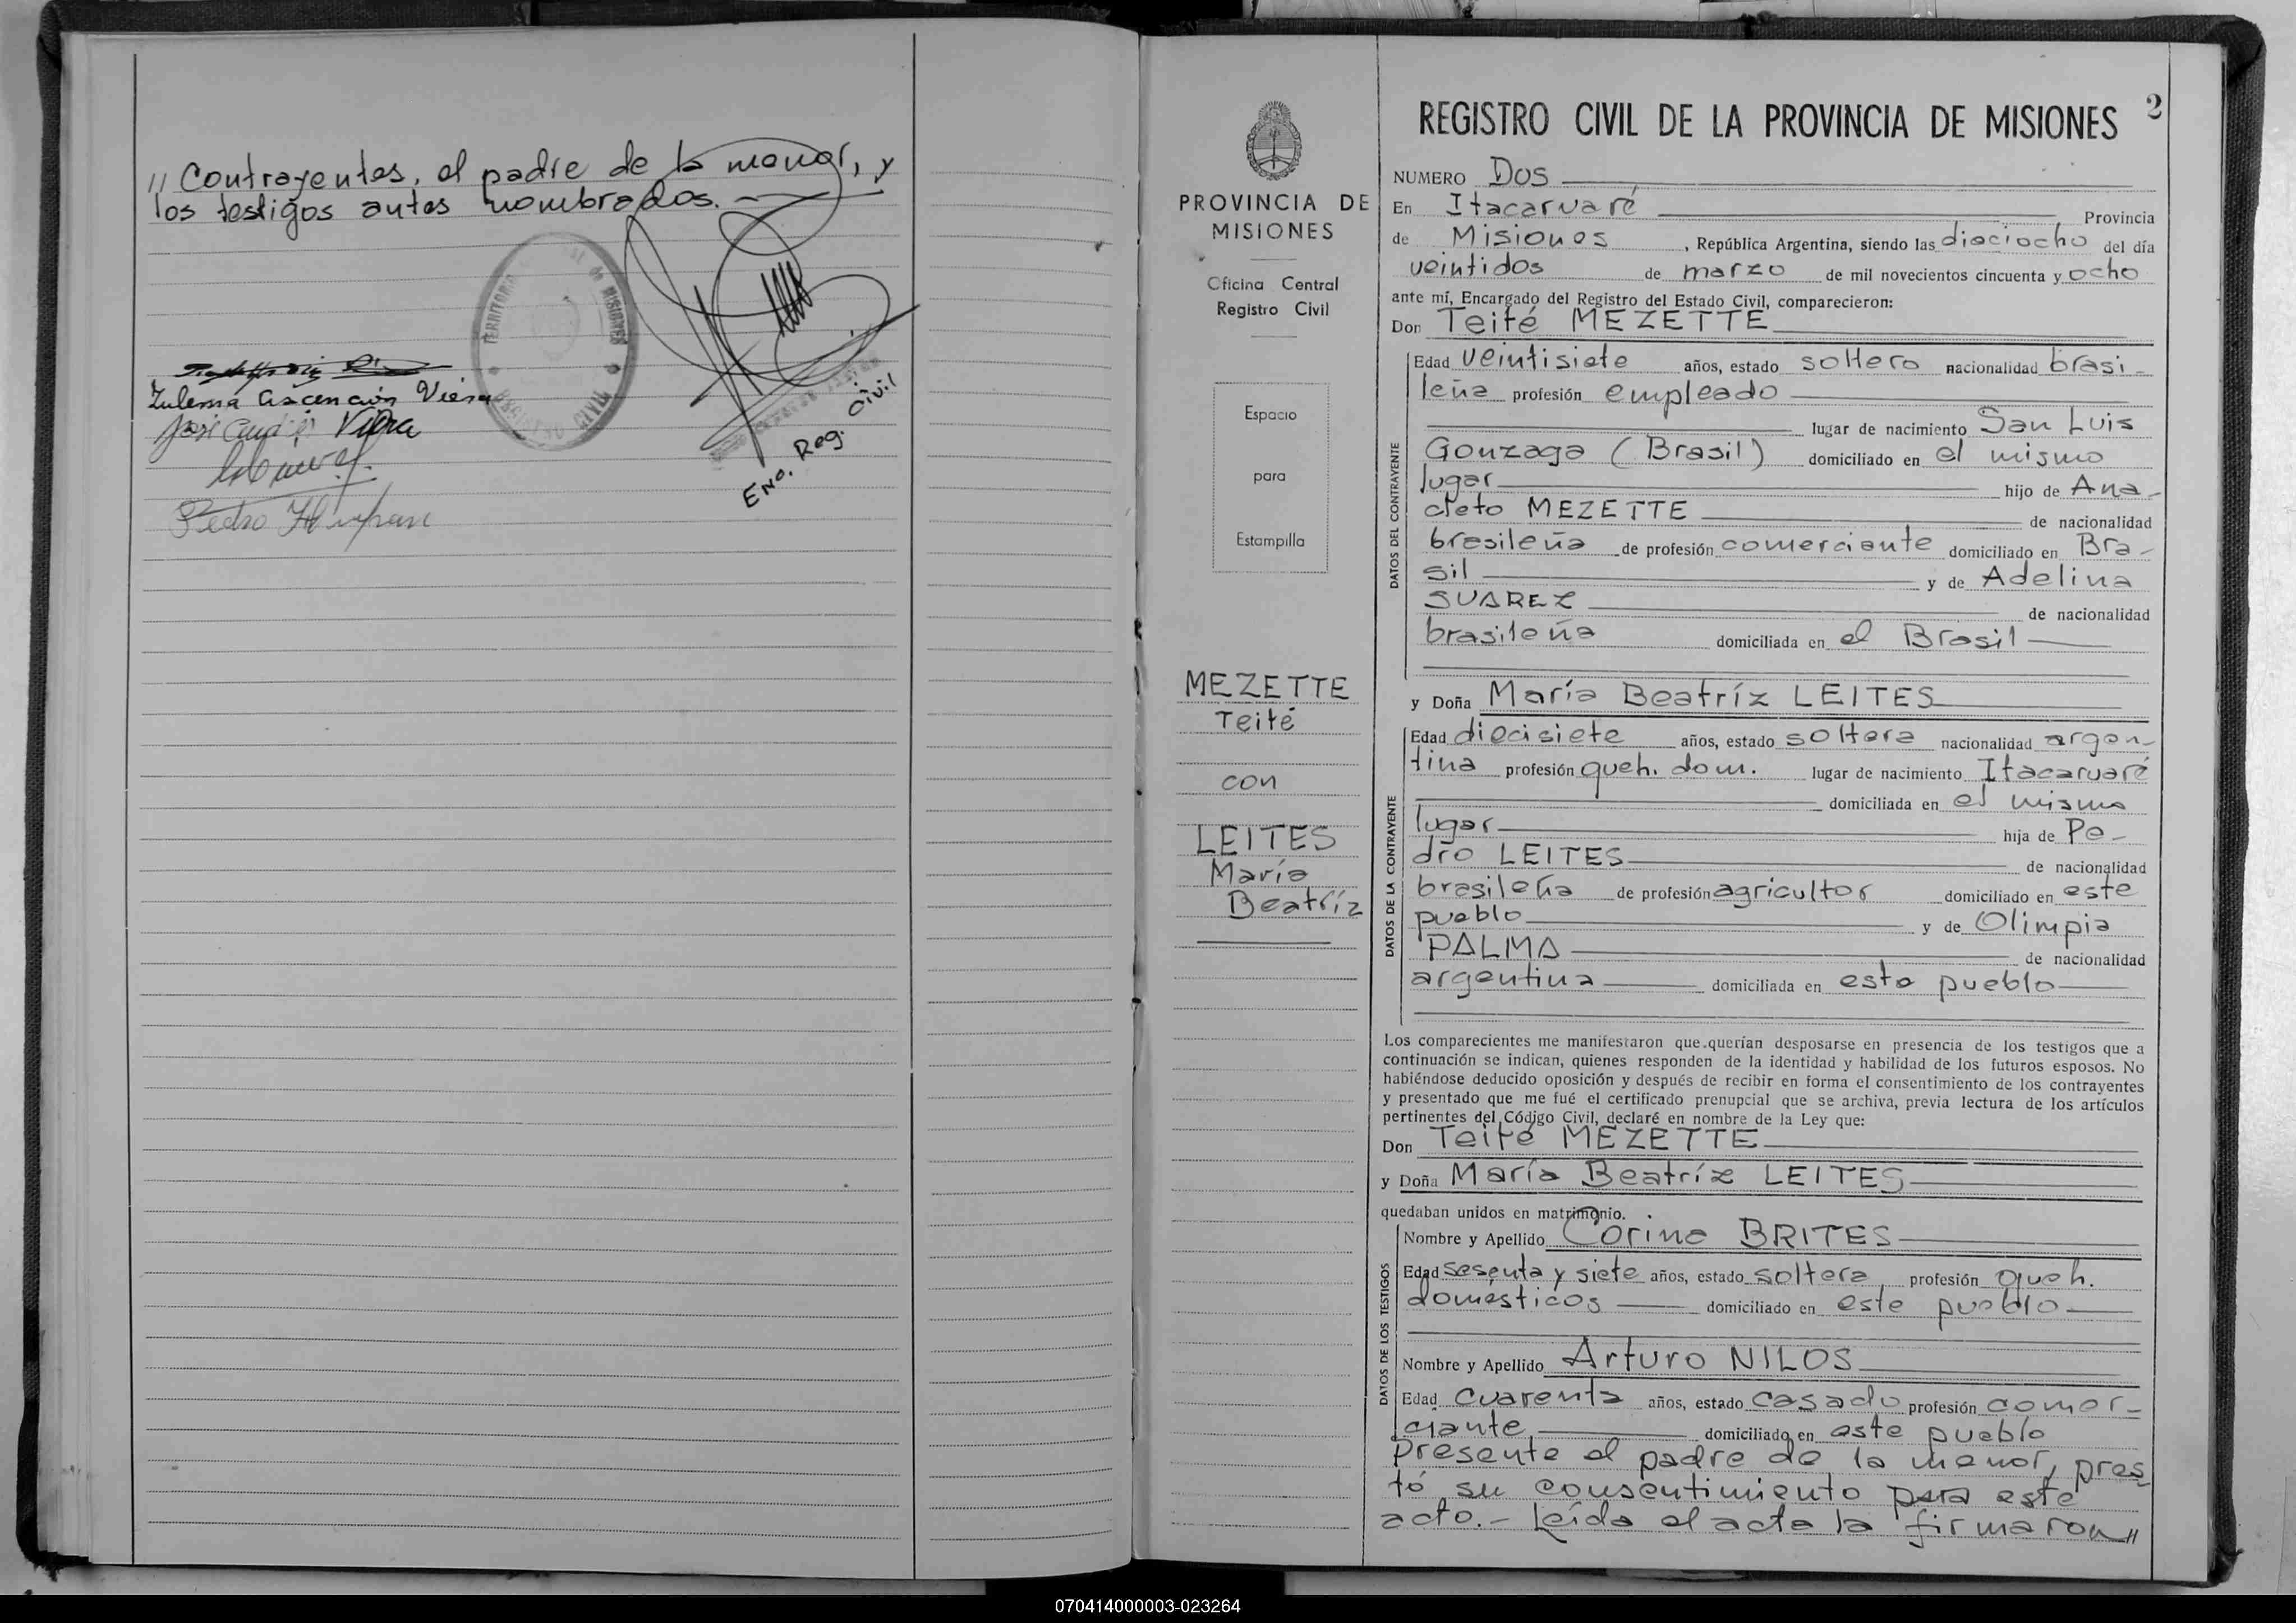 " Contrayentes, el padre de la menor, y
los testigos antes nombrados.
TERRITORIO
de MISIONES
CIVIL
Zulema Ascención Viera
José Viera
Pedro
Enc. Reg. Civil
PROVINCIA DE
MISIONES
Oficina Central
Registro Civil
Espacio
para
Estampilla
MEZETTE
Teité
con
LEITES
María
Beatríz
REGISTRO CIVIL DE LA PROVINCIA DE MISIONES 2
NUMERO Dos
En Itacaruaré Provincia
de Misiones, República Argentina, siendo las dieciocho del día
veintidos de marzo de mil novecientos cincuenta y ocho
ante mí, Encargado del Registro del Estado Civil, comparecieron:
Don Teité MEZETTE
DATOS DEL CONTRAYENTE
Edad veintisiete años, estado soltero nacionalidad brasi-
leña profesión empleado
lugar de nacimiento San Luis
Gonzaga (Brasil) domiciliado en el mismo
lugar hijo de Ana-
cleto MEZETTE de nacionalidad
brasileña de profesión comerciante domiciliado en Bra-
sil y de Adelina
SUAREZ de nacionalidad
brasileña domiciliada en el Brasil
y Doña María Beatríz LEITES
DATOS DE LA CONTRAYENTE
Edad diecisiete años, estado soltera nacionalidad argen-
tina profesión queh. dom. lugar de nacimiento Itacaruaré
domiciliada en el mismo
lugar hija de Pe-
dro LEITES de nacionalidad
brasileña de profesión agricultor domiciliado en este
pueblo y de Olimpia
PALMA de nacionalidad
argentina domiciliada en este pueblo
Los comparecientes me manifestaron que querían desposarse en presencia de los testigos que a
continuación se indican, quienes responden de la identidad y habilidad de los futuros esposos. No
habiéndose deducido oposición y después de recibir en forma el consentimiento de los contrayentes
y presentado que me fué el certificado prenupcial que se archiva, previa lectura de los artículos
pertinentes del Código Civil, declaré en nombre de la Ley que:
Don Teité MEZETTE
y Doña María Beatríz LEITES
quedaban unidos en matrimonio.
DATOS DE LOS TESTIGOS
Nombre y Apellido Corina BRITES
Edad sesenta y siete años, estado soltera profesión queh.
domésticos domiciliado en este pueblo
Nombre y Apellido Arturo NILOS
Edad cuarenta años, estado casado profesión comer-
ciante domiciliado en este pueblo
Presente el padre de la menor, pres-
tó su consentimiento para este
acto.- Leída el acta la firmaron"
070414000003-023264